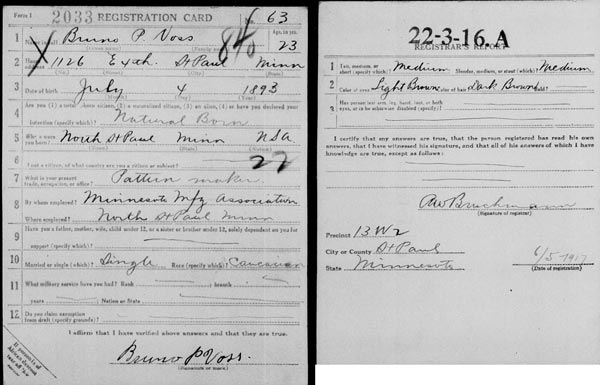 Form 1 2033 REGISTRATION CARD No. 63
1 Bruno P. Voss Age, in yrs. 23
2 1126 E 4th. St Paul Minn
3 Date of birth July 4 1893
4 Are you (1) a natural-born citizen, (2) a naturalized citizen, (3) an alien, (4) or have you declared your
intention (specify which)? Natural Born
5 Where were you born? North St Paul Minn USA
6 If not a citizen, of what country are you a citizen or subject?
22
7 What is your present trade, occupation, or office? Pattern maker
8 By whom employed? Minnesota Mfg Association
Where employed? North St Paul Minn
9 Have you a father, mother, wife, child under 12, or a sister or brother under 12, solely dependent on you for
support (specify which)?
10 Married or single (which)? Single Race (specify which)? Caucasian
11 What military service have you had? Rank branch
years Nation or State
12 Do you claim exemption from draft (specify grounds)?
I affirm that I have verified above answers and that they are true.
Bruno P Voss.
If person is of African descent, tear off this corner
22-3-16. A
REGISTRAR'S REPORT
1 Tall, medium, or short (specify which)? Medium Slender, medium, or stout (which)? Medium
2 Color of eyes Light Brown Color of hair Dark Brown Bald?
3 Has person lost arm, leg, hand, foot, or both eyes, or is he otherwise disabled (specify)?
I certify that my answers are true, that the person registered has read his own
answers, that I have witnessed his signature, and that all of his answers of which I have
knowledge are true, except as follows:
(Signature of registrar)
Precinct 13 W 2
City or County St Paul
State Minnesota
6/5-1917
(Date of registration)